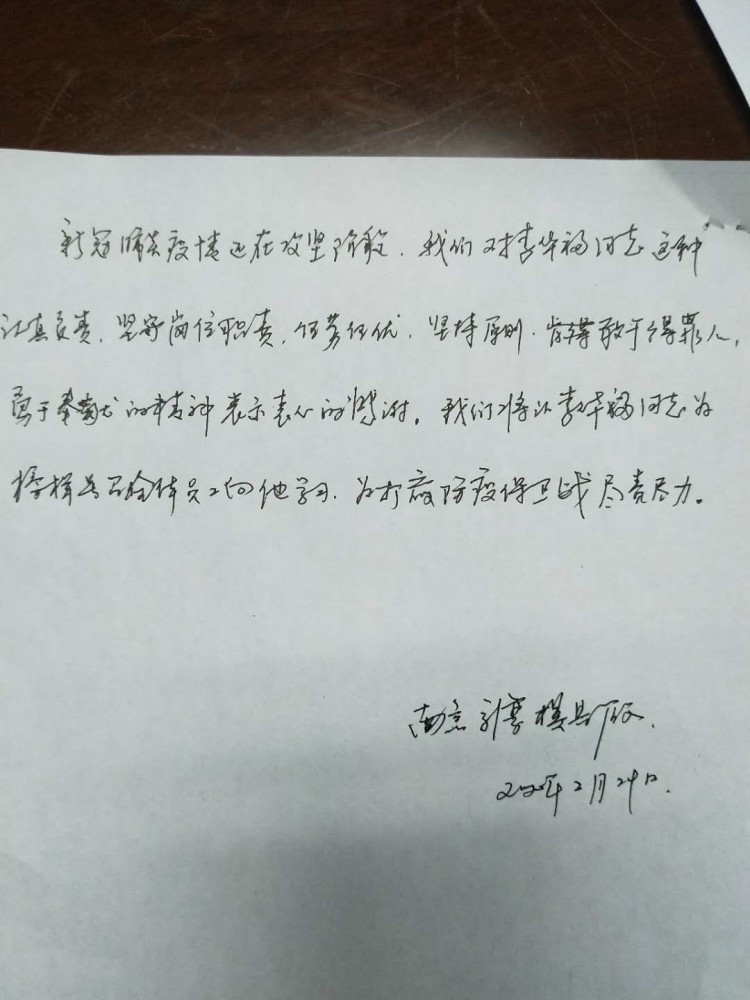 新冠肺炎疫情还在攻坚阶段，我们对李华福同志这种
认真负责，坚守岗位职责，任劳任怨，坚持原则，肯得敢于得罪人，
勇于奉献的精神表示衷心的感谢，我们将以李华福同志为
榜样号召全体员工向他学习，为打赢防疫保卫战尽责尽力。
南京 模具厂
2020年2月24日